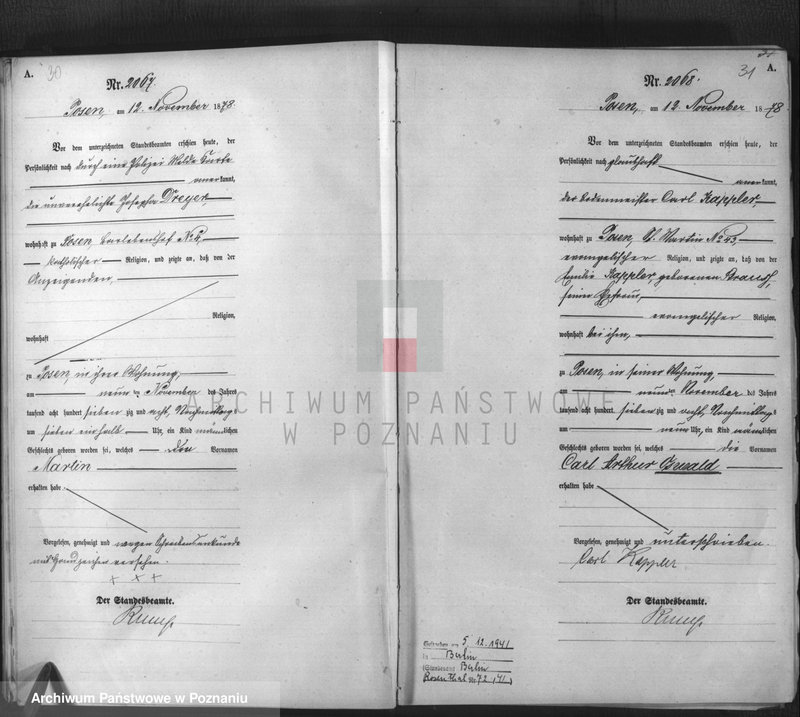 A. 30
Nr. 2067.
Posen, am 12. November 1878.
Vor dem unterzeichneten Standesbeamten erschien heute, der
Persönlichkeit nach durch eine Polizei Melde Karte
anerkannt,
die unverehelichte Josepha Dreyer,
wohnhaft zu Posen,
katholischer Religion, und zeigte an, daß von der
Anzeigenden,
Religion,
wohnhaft
zu Posen, in ihrer Wohnung,
am neun ten November des Jahres
tausend acht hundert sieben zig und acht, Vormittags
um sieben einhalb Uhr, ein Kind männlichen
Geschlechts geboren worden sei, welches den Vornamen
Martin
erhalten habe
Vorgelesen, genehmigt und wegen Schreibensunkunde
mit Handzeichen versehen.
+ + +
Der Standesbeamte.
A. 31
Nr. 2068.
Posen, am 12. November 1878
Vor dem unterzeichneten Standesbeamten erschien heute, der
Persönlichkeit nach glaubhaft
anerkannt,
der Bodenmeister Carl Kappler,
wohnhaft zu Posen, St. Martin No 43,
evangelischer Religion, und zeigte an, daß von der
Emilie Kappler geborenen
seiner Ehefrau,
evangelischer Religion,
wohnhaft bei ihm,
zu Posen, in seiner Wohnung,
am neunten November des Jahres
tausend acht hundert siebenzig und acht, Vormittags
um neun Uhr, ein Kind männlichen
Geschlechts geboren worden sei, welches die Vornamen
Carl Arthur Oswald
erhalten habe
Vorgelesen, genehmigt und unterschrieben.
Carl Kappler
Der Standesbeamte.
Gestorben am 5.12.1941
in Berlin
(Standesamt Berlin
Rosenthal Nr 72/41)
ARCHIWUM PAŃSTWOWE
W POZNANIU
Archiwum Państwowe w Poznaniu